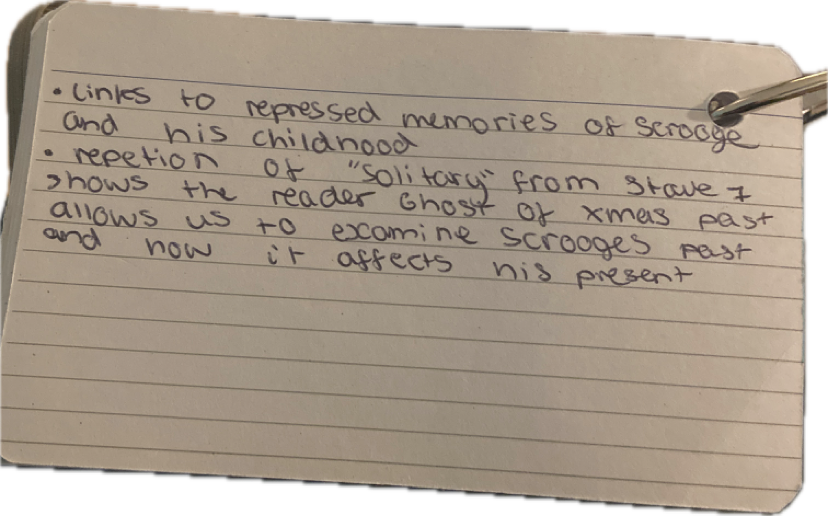 • Links to repressed memories of Scrooge
and his childhood
• repetion of "solitary" from stave 1
shows the reader Ghost of xmas past
allows us to examine Scrooges past
and how it affects his present